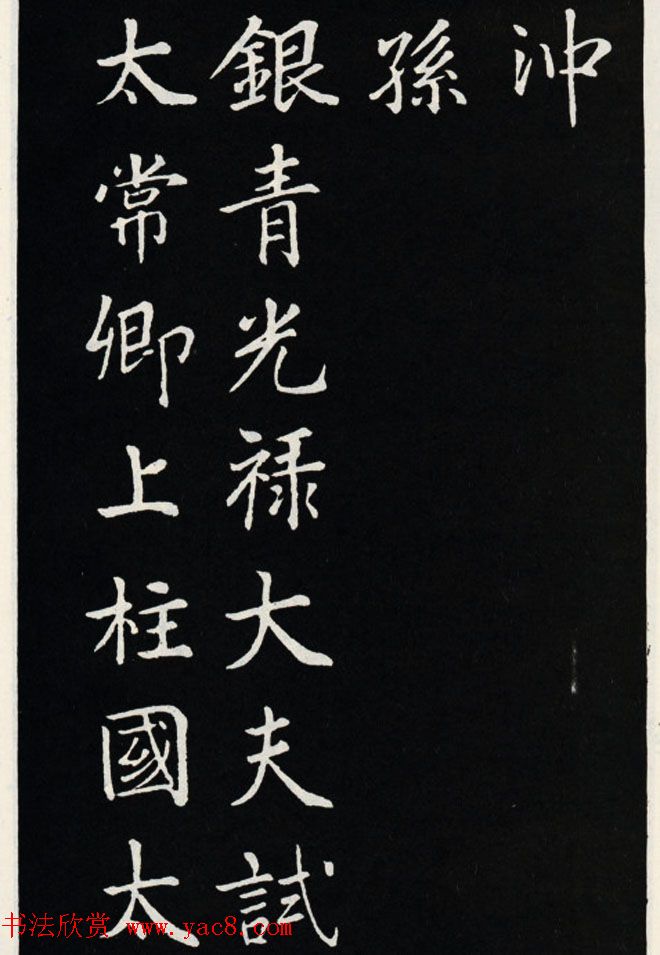 沖
孫
銀青光祿大夫試
太常卿上柱國太
书法欣赏 www.yac8.com